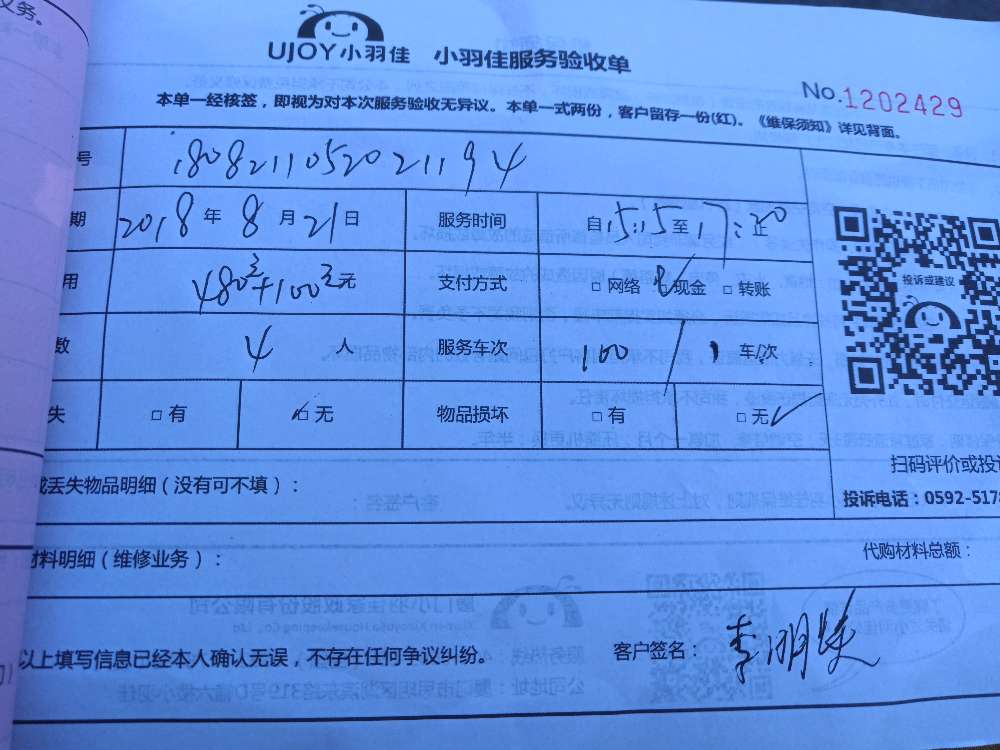 义务。
UJOY小羽佳 小羽佳服务验收单
No.1202429
本单一经核签，即视为对本次服务验收无异议。本单一式两份，客户留存一份(红)。《维保须知》详见背面。
号 1808211052021194
期 2018年8月21日 服务时间 自15:15至17:20止
用 480元+100元元 支付方式 □网络 □现金 □转账
数 4人 服务车次 100/1车/次
失 □有 □无 物品损坏 □有 □无
投诉或建议
扫码评价或投
或丢失物品明细（没有可不填）：
投诉电话：0592-517
材料明细（维修业务）：
代购材料总额：
以上填写信息已经本人确认无误，不存在任何争议纠纷。
客户签名：李明